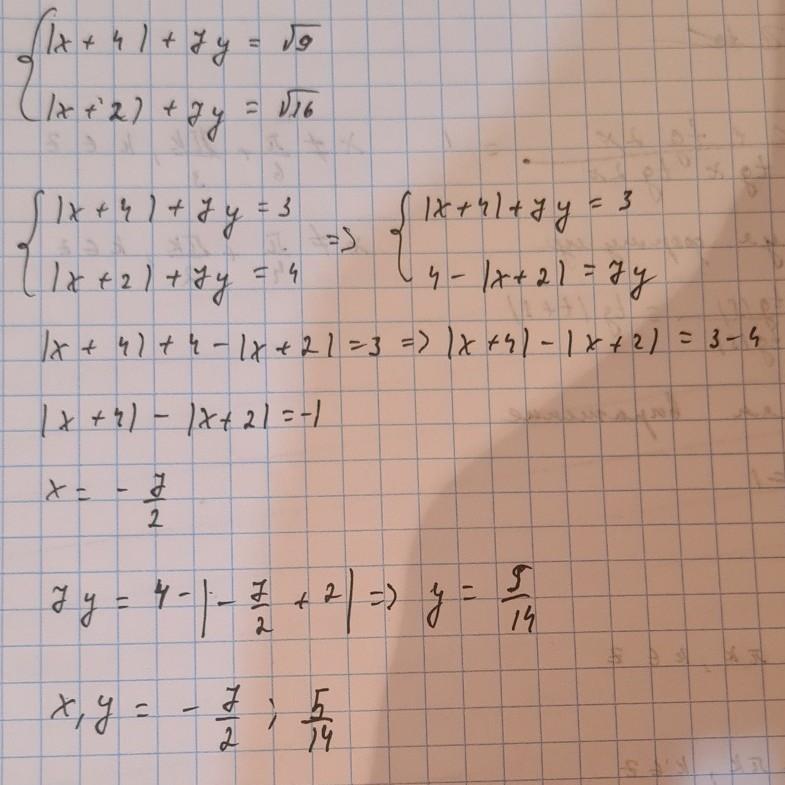 |x + 4| + 7y = √9
|x + 2| + 7y = √16
|x + 4| + 7y = 3 => |x+4| + 7y = 3
|x + 2| + 7y = 4 4 - |x+2| = 7y
|x + 4| + 4 - |x + 2| = 3 => |x+4| - |x+2| = 3-4
|x + 4| - |x+2| = -1
x = - 7/2
7y = 4 - |- 7/2 + 2| => y = 5/14
x, y = - 7/2 ; 5/14